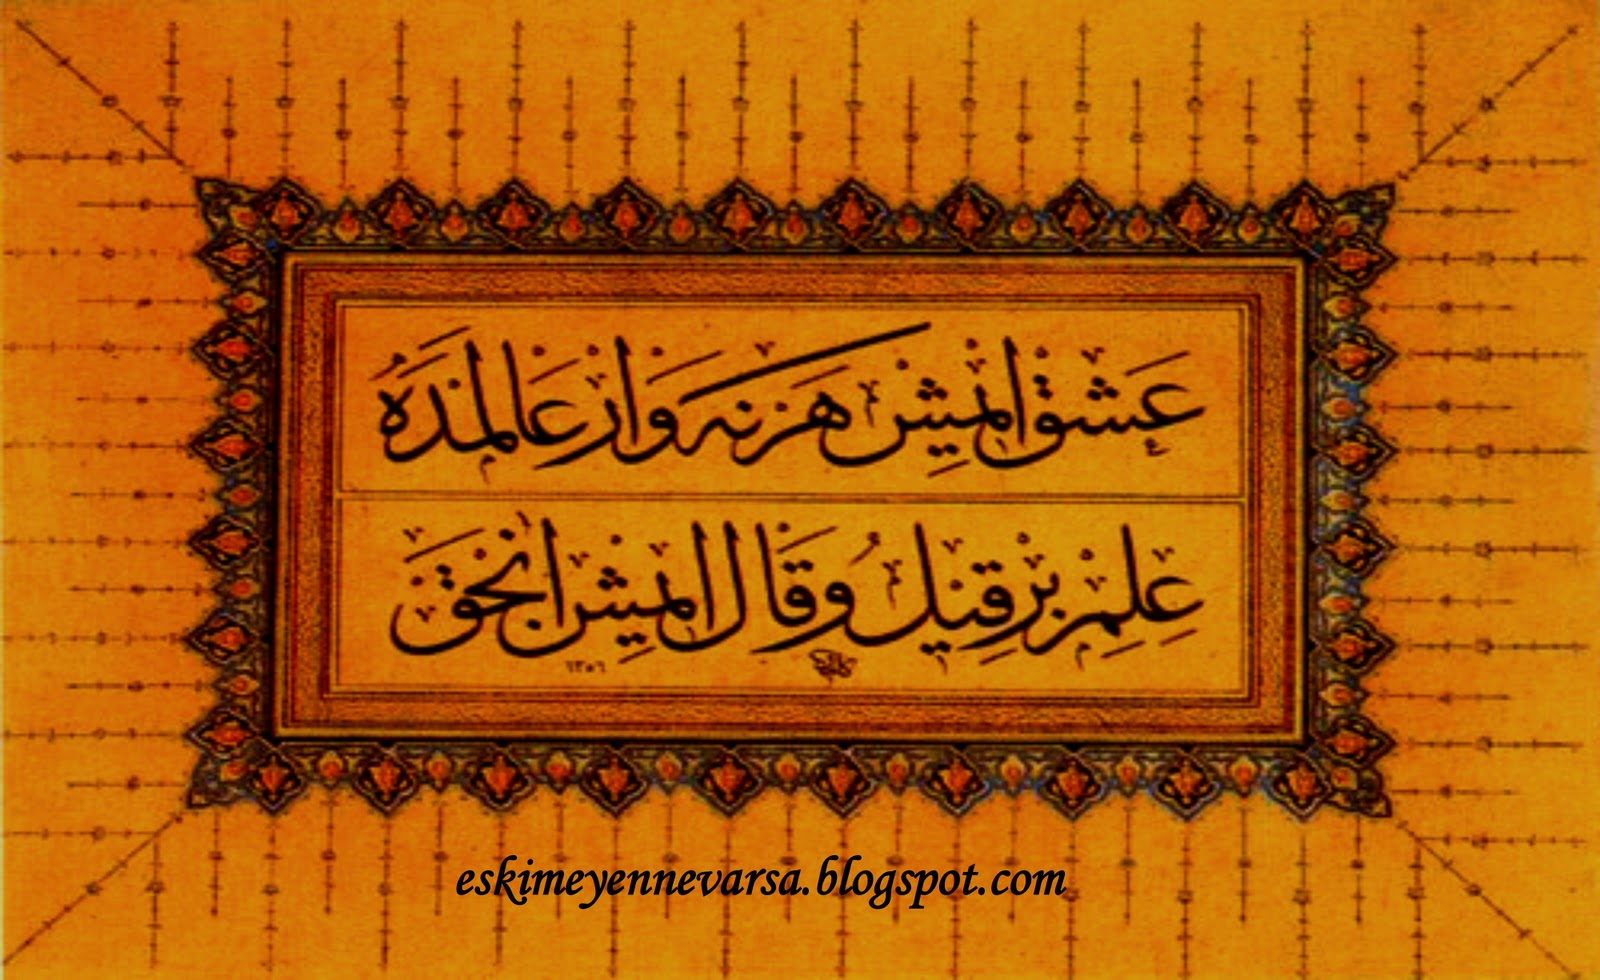 عشق ایمش هر نه وار عالمده
علم بر قیل و قال ایمش انجق
١٣٥٦
eskimeyennevarsa.blogspot.com